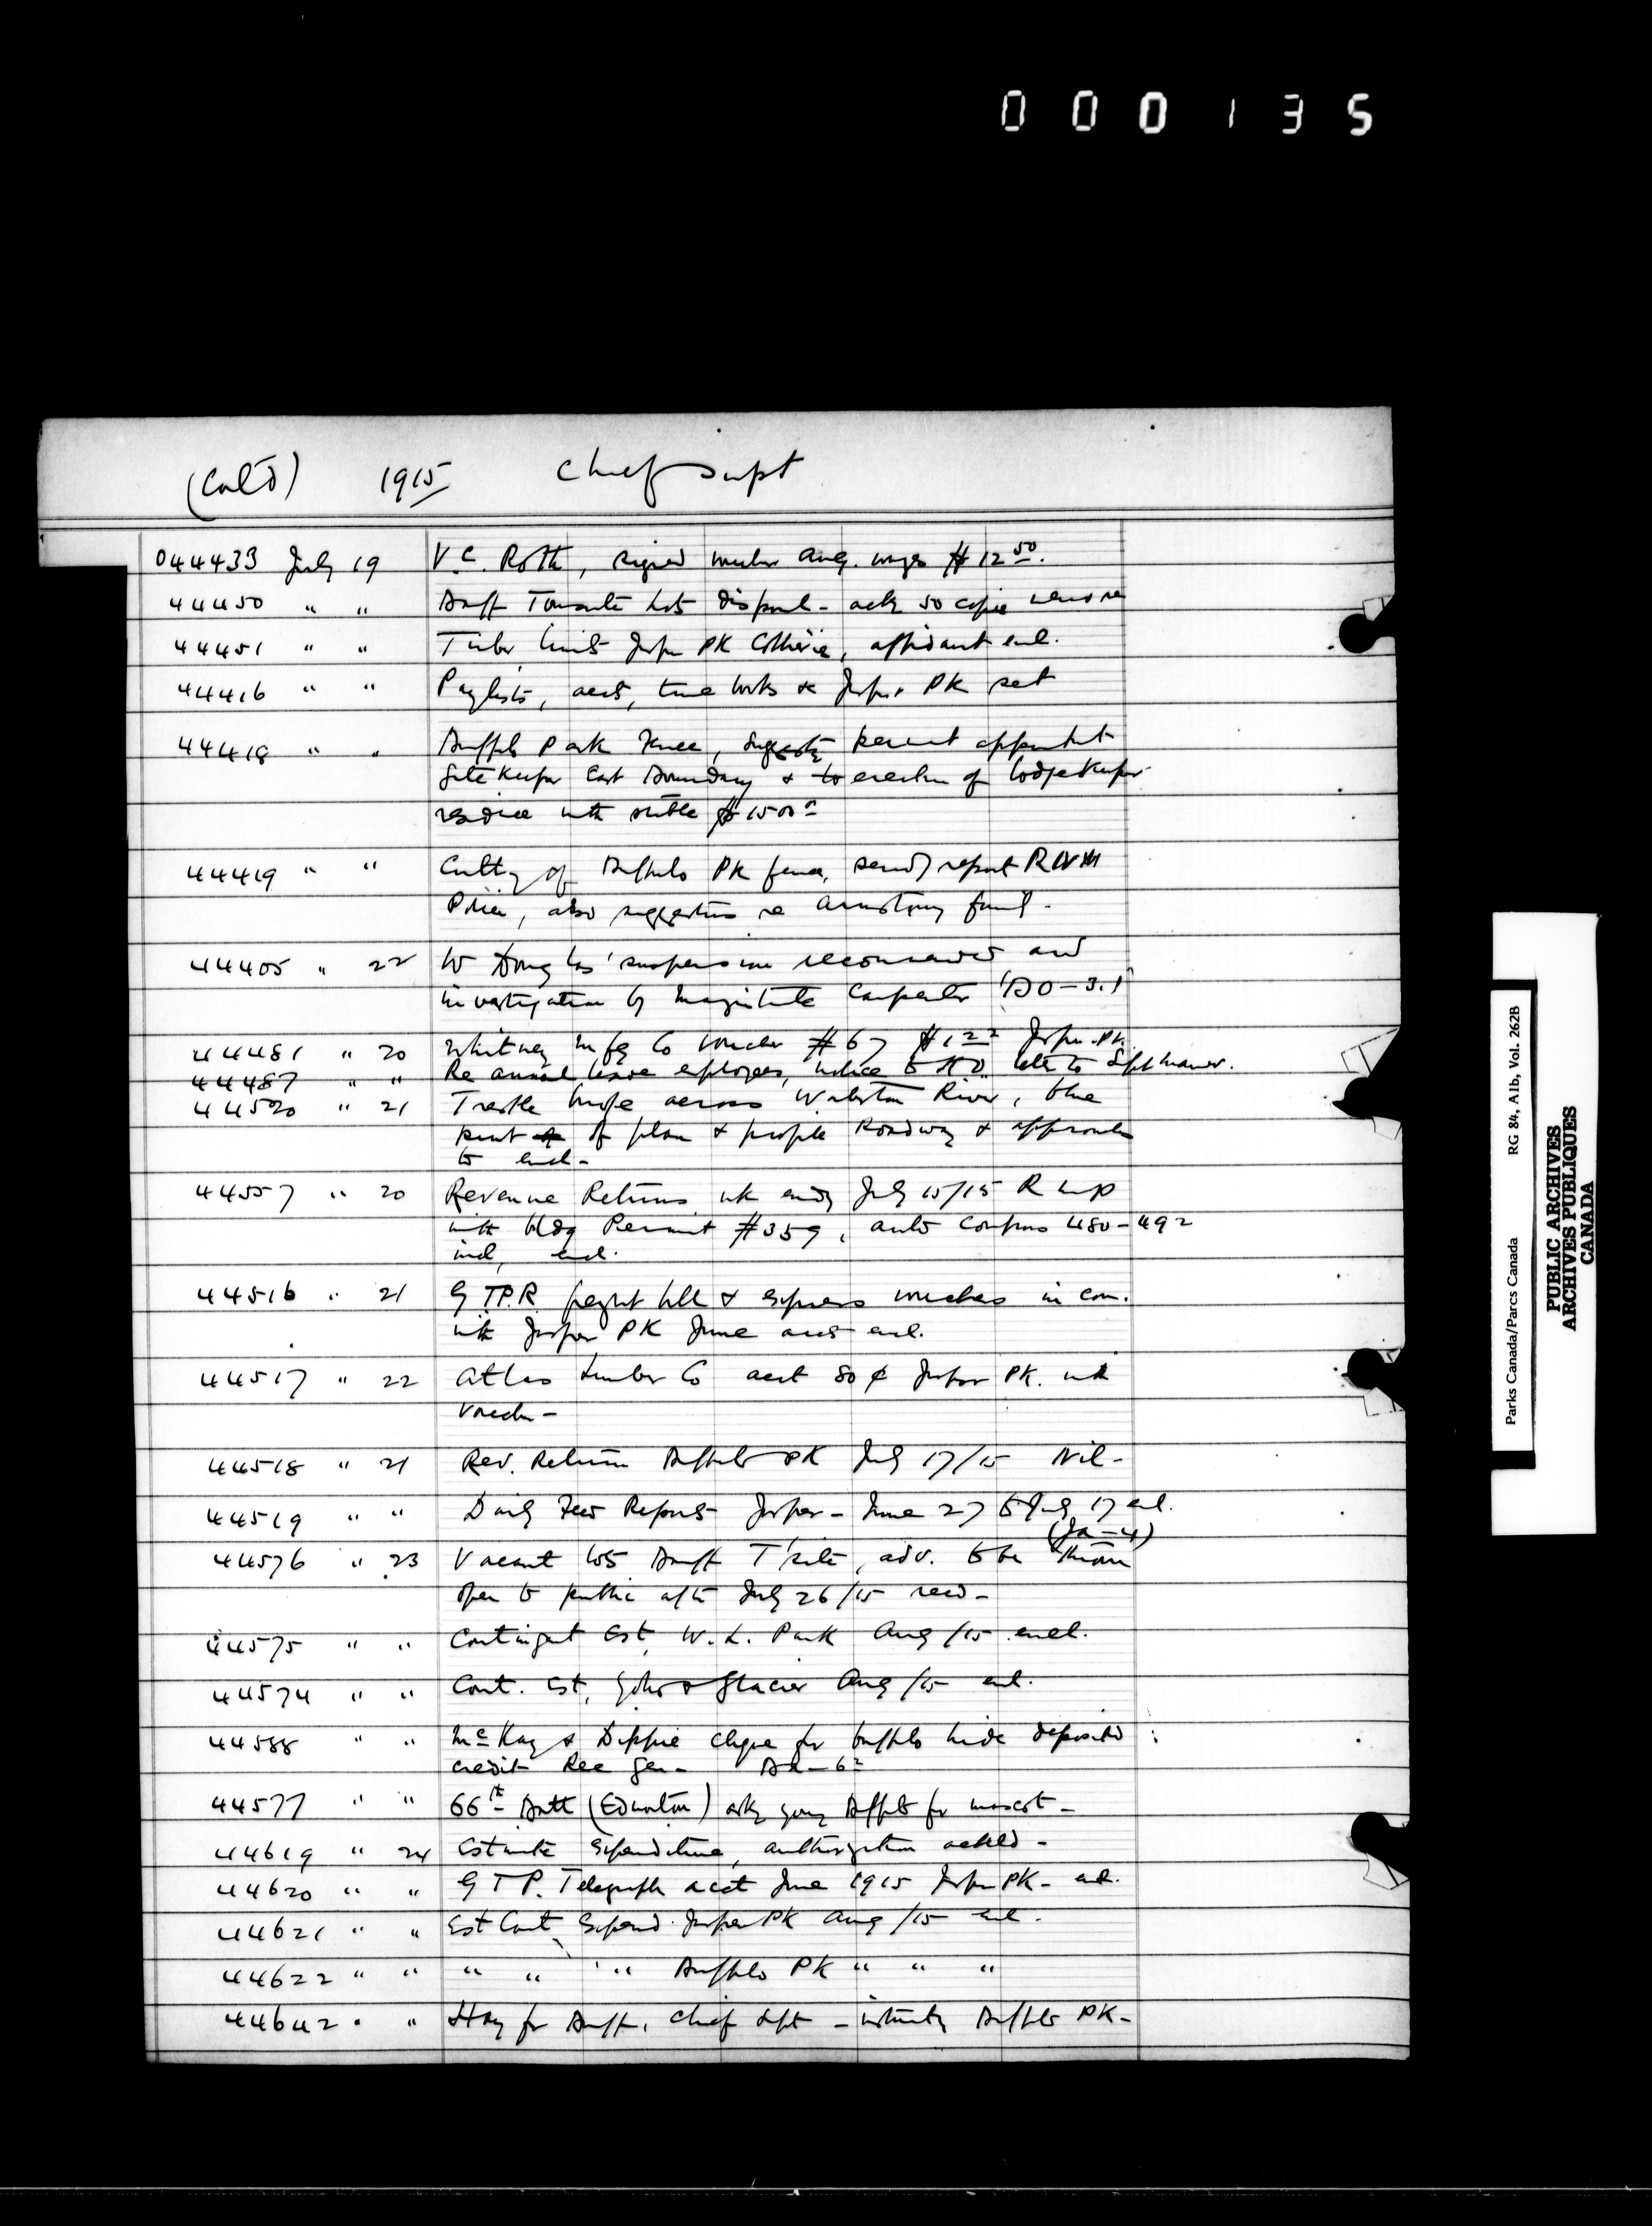 000135
(Cont'd) 1915 Chief Supt
044433 July 19 V.C. Roth, signed voucher Aug. wages $12 50.
44450 " " Banff Townsite lots disposal - ack 50 copies
44451 " " Timber limits Jasper PK Collieries, affidavit encl.
44416 " " Paylists, accts, time books & Jasper PK ret
44418 " " Buffalo Park Fence, suggests permt appointmt
Gatekeeper East Boundary & to erection of lodgekeeper
residence with stable $1500
44419 " " Cutting of Buffalo PK fence, sendg report RNWM
Police, also suggestions re Armstrong family -
44405 " 22 W Douglas' suspension reconsidered and
investigation by Magistrate Carpenter
44481 " 20 Whitney Mfg Co voucher #67 Jasper PK.
44487 " " Re annual leave employees, notice to H.O. later to
44520 " 21 Trestle bridge across Waterton River, blue
print of plan & profile Roadway & approaches
to encl -
44557 " 20 Revenue Returns wk endg July 15/15 R M P
with bldg Permit #359, auto Coupons 480-492
incl, encl.
44516 " 21 G.T.P.R. freight bill & express vouchers in con.
with Jasper PK June accts encl.
44517 " 22 Atlas Lumber Co acct 80 ¢ Jasper PK. with
voucher -
44518 " 21 Rev. Return Buffalo PK July 17/15 Nil -
44519 " " Daily Fees Reports Jasper - June 27 to July 17 encl.
(Ja-4)
44576 " 23 Vacant lots Banff T'site, adv. to be thrown
open to public after July 26/15 recd -
44575 " " Contingent Est, W.L. Park Aug /15 encl.
44574 " " Cont. Est, Yoho & Glacier Aug /15 encl.
44588 " " McKay & Dippie cheque for buffalo hide deposited
credit Rec Gen -
44577 " " 66th Batt (Edmonton) askg young Buffalo for mascot -
44619 " 24 Estimate Expenditure, authorization ackld -
44620 " " G T P. Telegraph acct June 1915 Jasper PK - encl.
44621 " " Est Cont, Expend. Jasper PK Aug /15 encl.
44622 " " " " " Buffalo PK " " "
44642 " " Hay for Banff, Chief Supt - Buffalo PK -
Parks Canada/Parcs Canada RG 84, A1b, Vol. 262B
PUBLIC ARCHIVES
ARCHIVES PUBLIQUES
CANADA